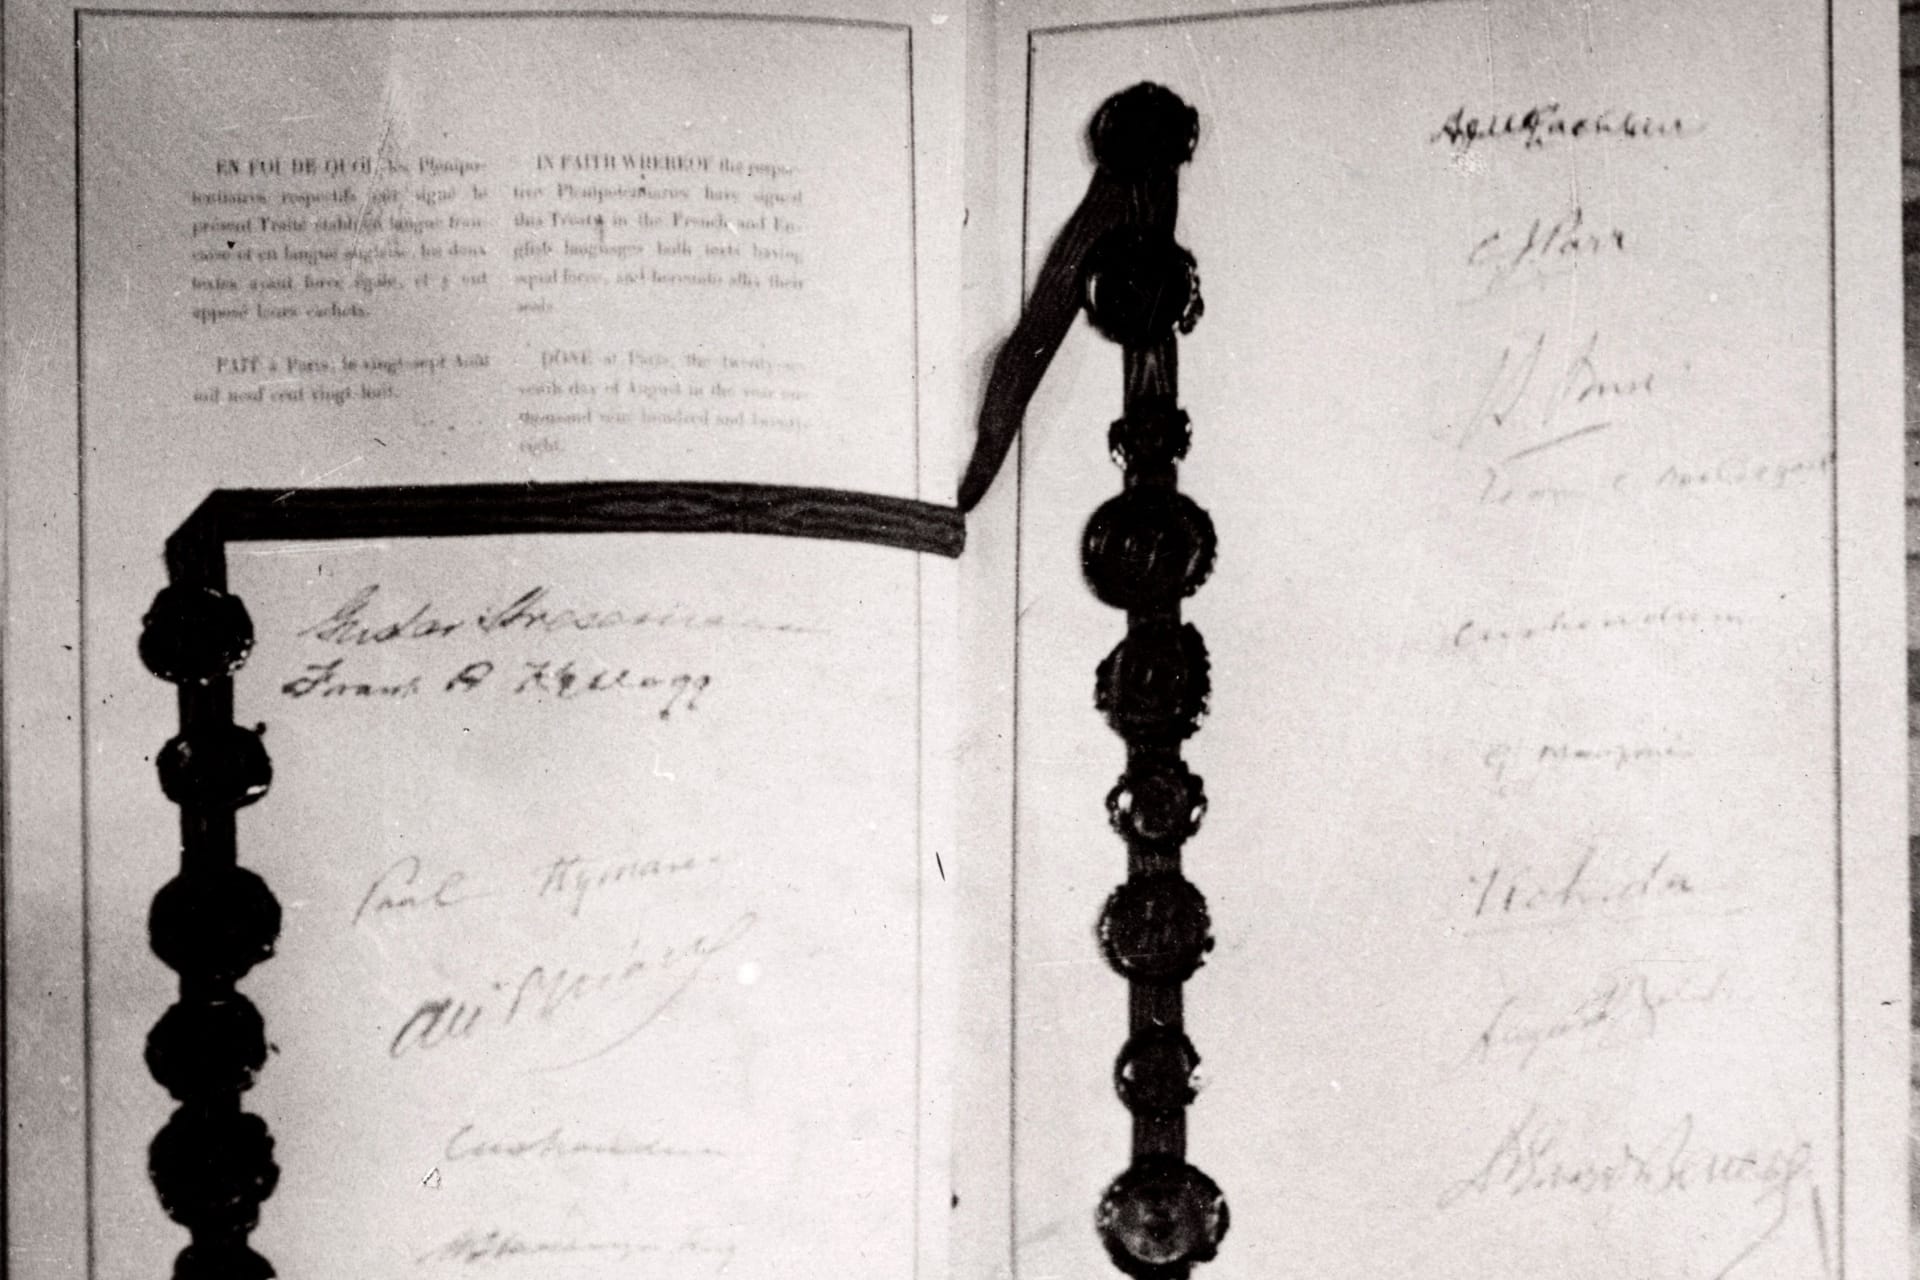 EN FOI DE QUOI, les Plénipo-
tentiaires respectifs ont signé le
présent Traité établi en langue fran-
çaise et en langue anglaise, les deux
textes ayant force égale, et y ont
apposé leurs cachets.
FAIT à Paris, le vingt-sept Août
mil neuf cent vingt-huit.
IN FAITH WHEREOF the respec-
tive Plenipotentiaries have signed
this Treaty in the French and En-
glish languages both texts having
equal force, and hereunto affix their
seals.
DONE at Paris, the twenty-
seventh day of August in the year one
thousand nine hundred and twenty-
eight.
Gustav Stresemann
Frank B Kellogg
Paul Hymans
Ari Briand
Cushendun
W L Mackenzie King
C J Parr
Cushendun
Uchida
August Zaleski